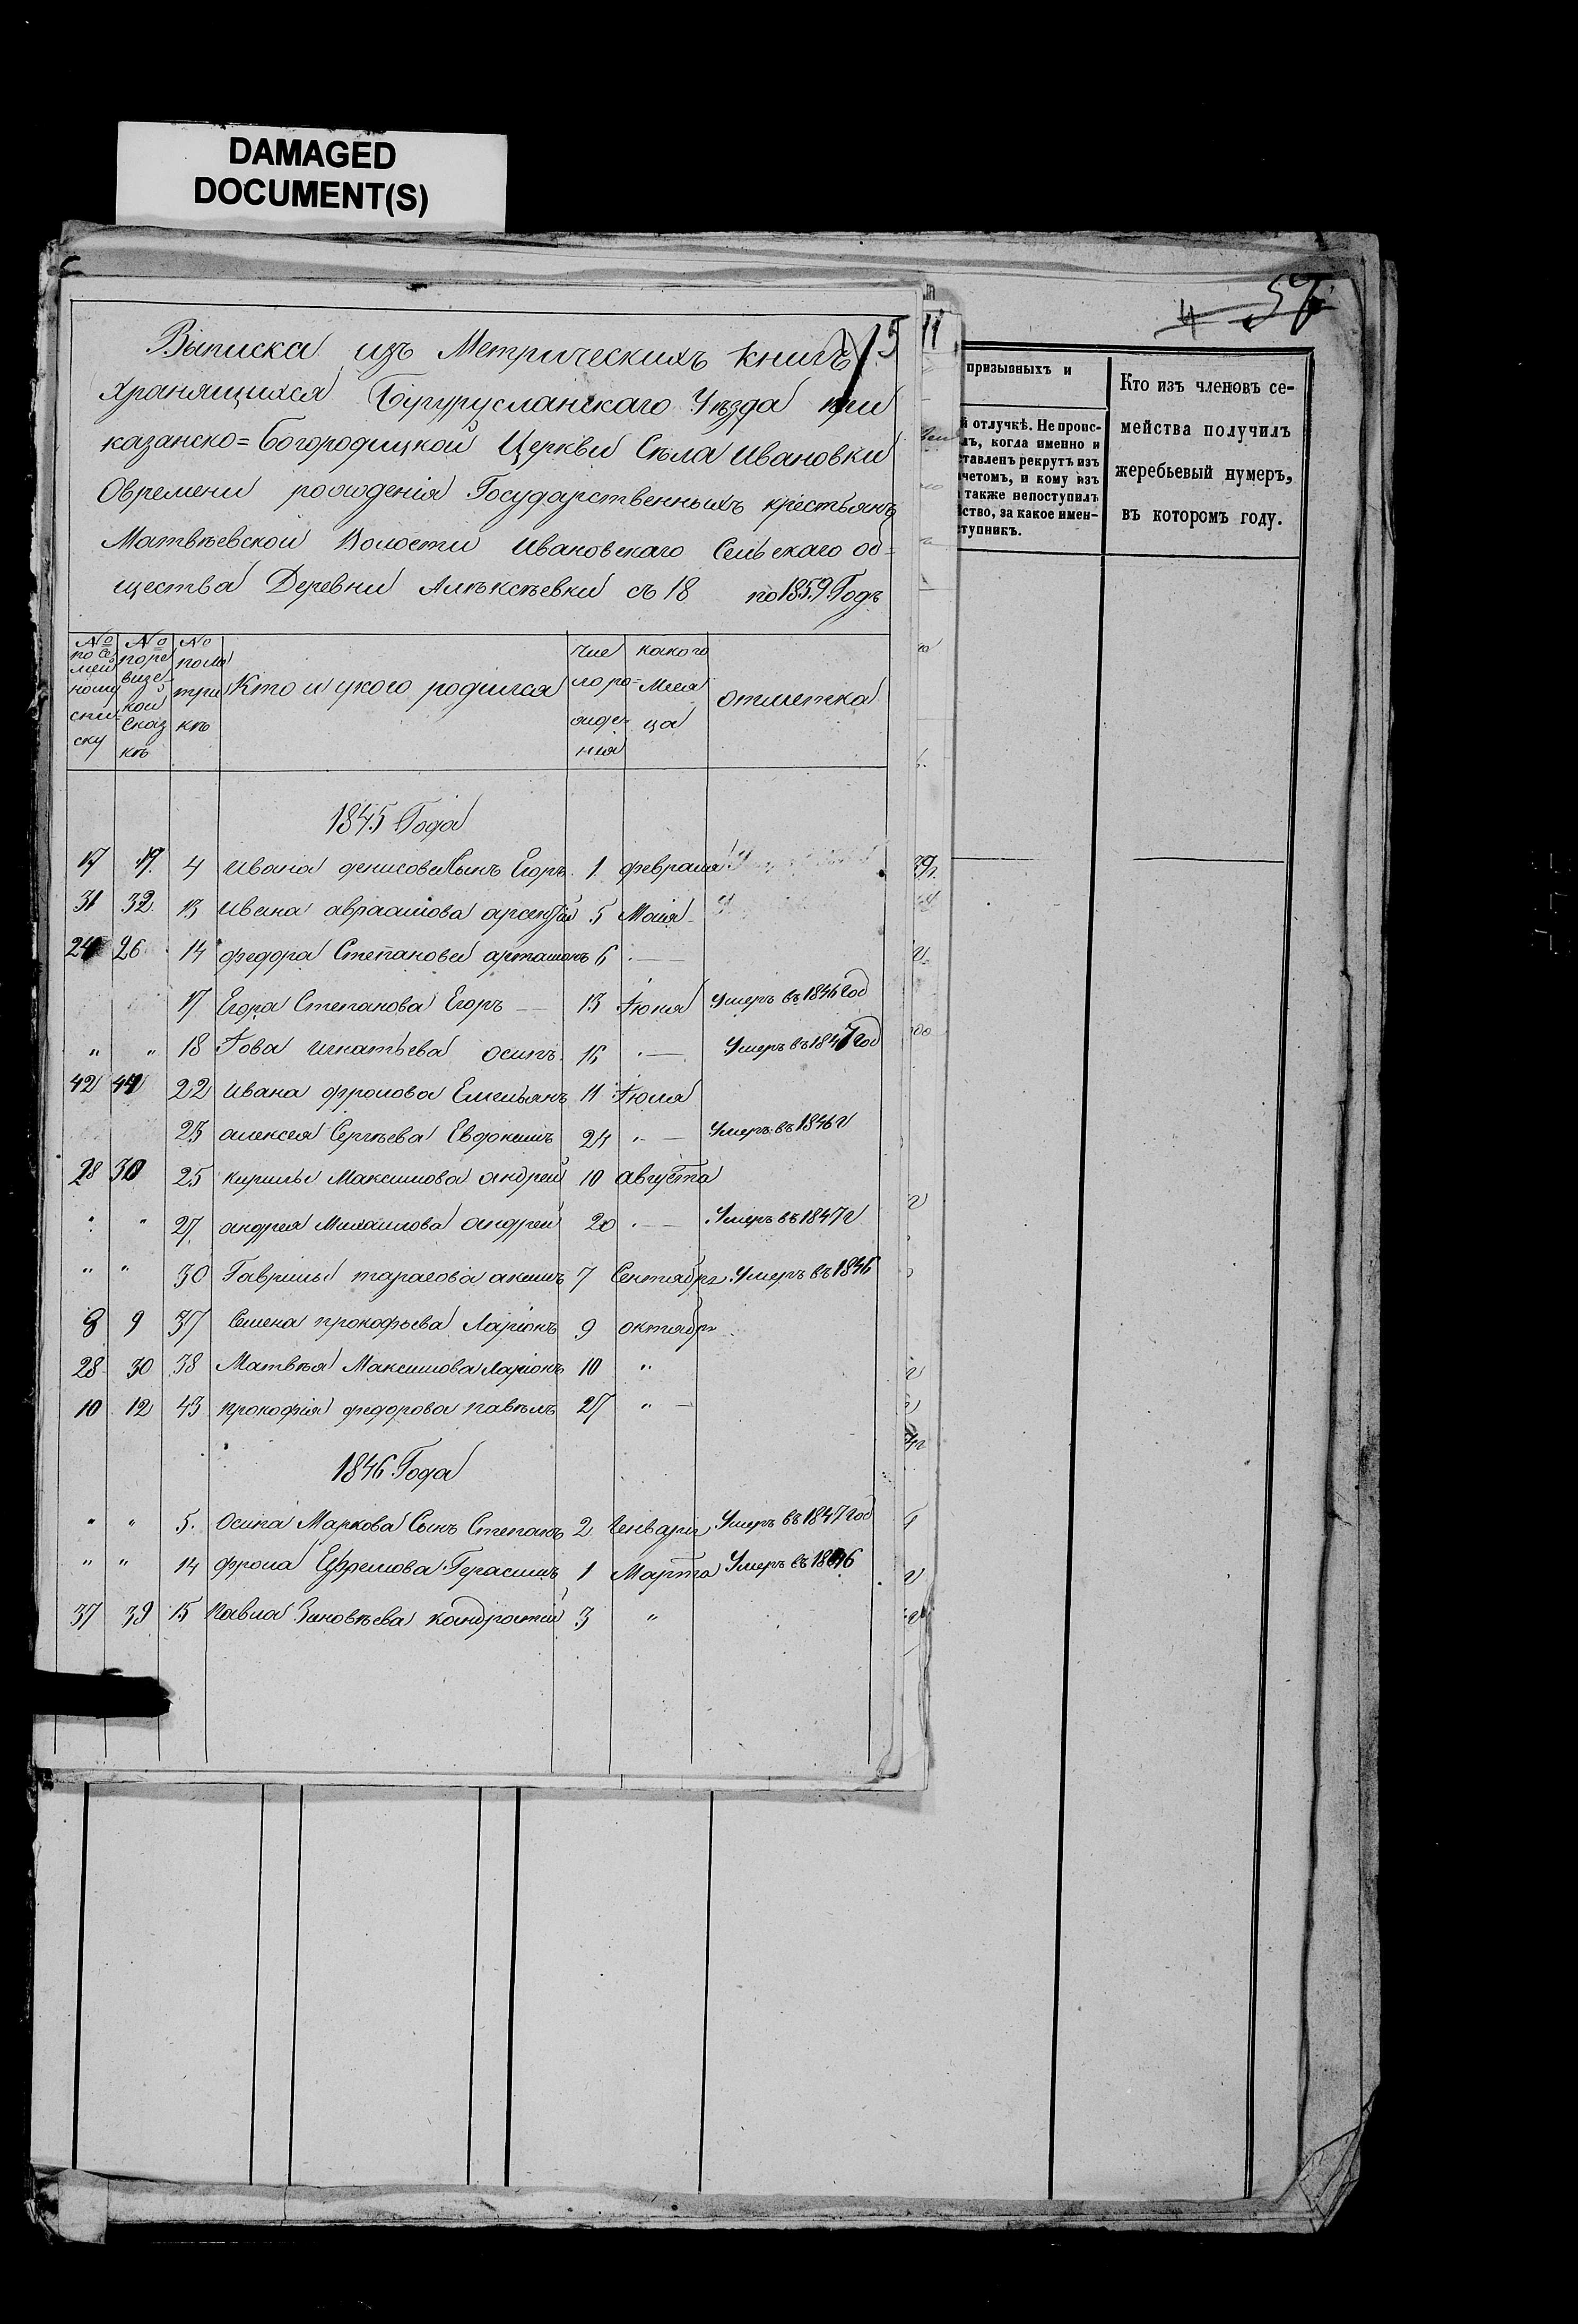 DAMAGED
DOCUMENT(S)
57
15
11
Выписка изъ Метрическихъ книгъ
хранящихся Бугурусланскаго Уѣзда при
казанско=Богородицкой Церкви Села Ивановки
Овремени рожденія Государственныхъ крестьянъ
Матвѣевской Волости Ивановскаго Сельскаго об=
щества Деревни Алѣксѣевки съ 18 по 1859. Годъ
№ по Се мей ному спи- ску
№ поре визс кой Сказ кѣ
№ поме три кѣ
Кто и укого родился
Чис ло ро= жде- нія
какого Меся ца
отметка
призывныхъ и
й отлучкѣ. Не проис-
лъ, когда именно и
ставленъ рекрутъ изъ
четомъ, и кому изъ
также непоступилъ
ство, за какое имен-
ступникъ.
Кто изъ членовъ се-
мейства получилъ
жеребьевый нумеръ,
въ которомъ году.
1845 Года
17 19. 4 Ивана денисова Сынъ Егоръ. 1 февраля
31 32 13 Ивана авраамова арсентій 5 Маія
24 26 14 федора Степанова артамонъ 6 —
17 Егора Степанова Егоръ — 13 Іюня Умеръ въ 1846 год
" " 18 Іова игнатьева осипъ. 16 — Умеръ въ 1847 год
42 44 22 Ивана фролова Емельянъ 11 Іюля
23 алексея Сергѣева Евдокимъ 24 " — Умеръ въ 1846 г
28 30 25 кирилы Максимова андрей 10 августа
" " 27 андрея Михаилова андрей 20 — Умеръ въ 1847 г
" " 30 Гаврилы тарасова акимъ 7 Сентября Умеръ въ 1846
8 9 37 Семена прокофьева Ларіонъ 9 октября
28 30 38 Матвѣя Максимова Ларіонъ 10 "
10 12 43 прокофія федорова павѣлъ 27 " —
1846 Года
" " 5. Осипа Маркова Сынъ Степанъ 2 Генваря Умеръ въ 1847 год
" " 14 фрола Ефремова Герасимъ 1 Марта Умеръ въ 1846
37 39 15 Павла Зиновѣева кондратій 3 "